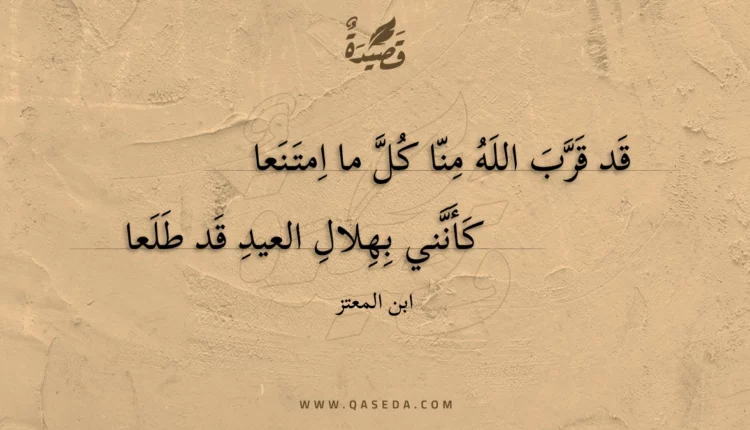 قَصِيدَةٌ
قَد قَرَّبَ اللَهُ مِنّا كُلَّ ما اِمتَنَعا
كَأَنَّني بِهِلالِ العيدِ قَد طَلَعا
ابن المعتز
WWW.QASEDA.COM